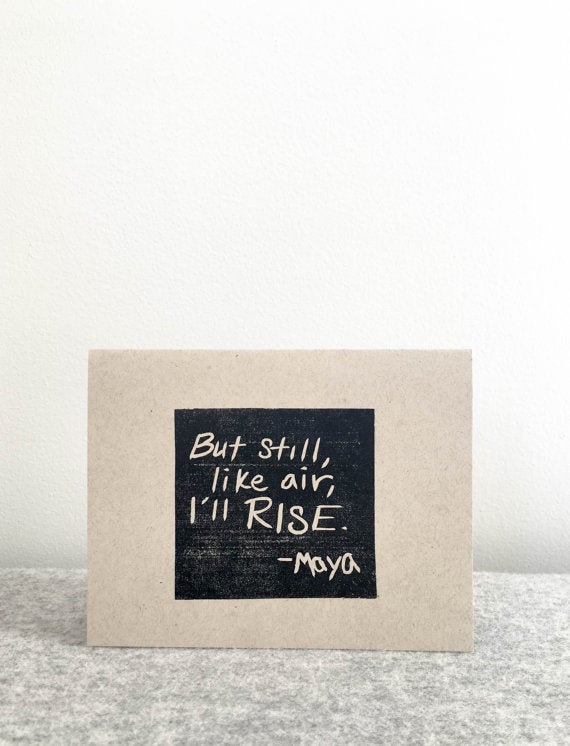 But still,
like air,
I'll RISE.
-Maya